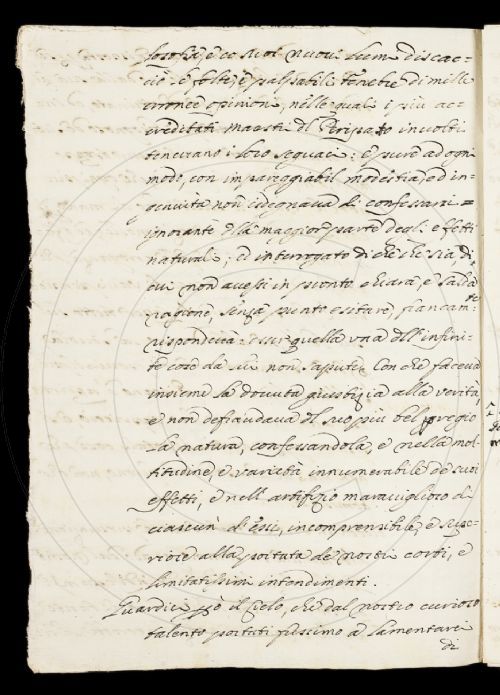 losofia, e co suoi nuovi lumi discac-
ciò le folte, e palpabili tenebre di mille
erronee opinioni, nelle quali i più ac-
creditati maestri del Peripato involti
tenevano i loro seguaci: e pure ad ogni
modo, con impareggiabil modestia, ed in-
genuità non isdegnava di confessarsi
ignorante della maggior parte degl'effetti
naturali; ed interrogato di che che sia, di
cui non avesse in pronto chiara, e salda
ragione, senza punto esitare, francam.te
rispondeva: esser quella una dell'infini-
te cose da lui non sapute. Con che faceva
insieme la dovuta giustizia alla verità,
e non defraudava del suo più bel pregio
la natura, confessandola, e nella mol-
titudine, e varietà innumerabile de suoi
effetti, e nell'artifizio maraviglioso di
ciascun d'essi, incomprensibile, e supe-
riore alla portata de nostri corti, e
limitatissimi intendimenti.
Guardici però il cielo, che dal nostro curioso
talento portati fussimo a lamentarci
di